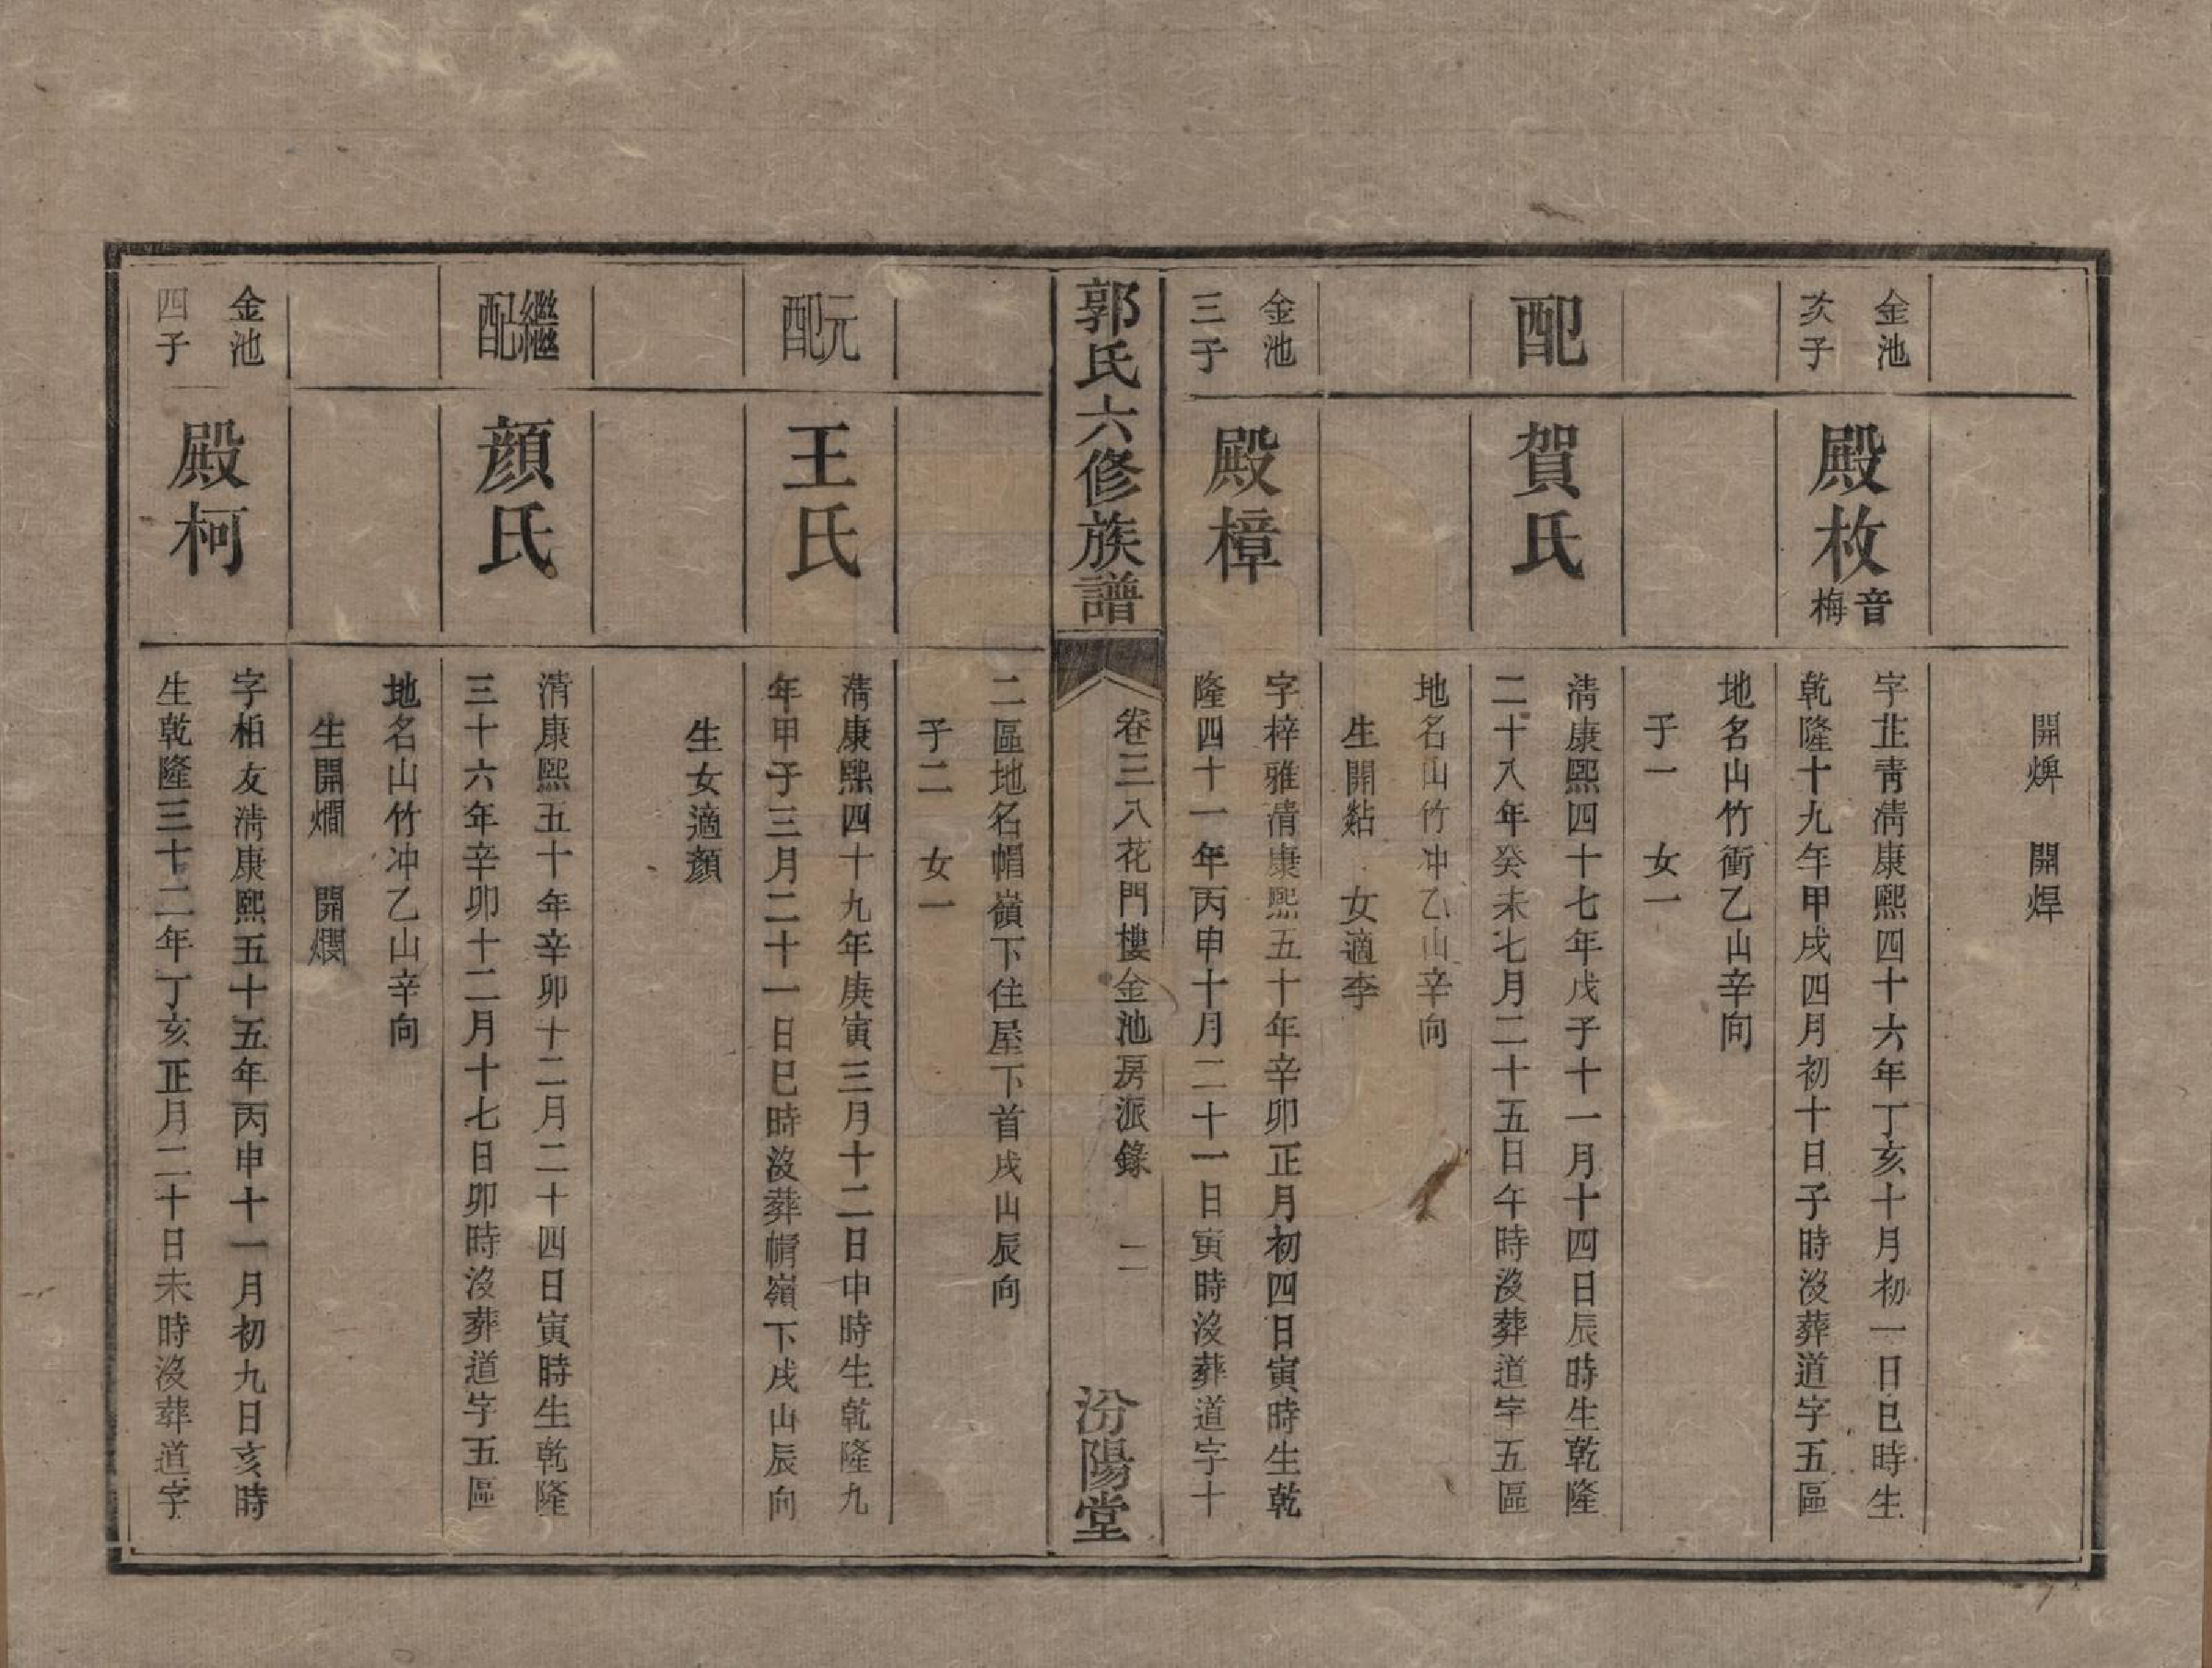 開焷　開焊
金池
次子
殿枚
音
梅
字芷青清康熙四十六年丁亥十月初一日巳時生
乾隆十九年甲戌四月初十日子時沒葬道字五區
地名山竹衝乙山辛向
子一　女一
配
賀氏
清康熙四十七年戊子十一月十四日辰時生乾隆
二十八年癸未七月二十五日午時沒葬道字五區
地名山竹冲乙山辛向
生開㸃　女適李
金池
三子
殿樟
字梓雅清康熙五十年辛卯正月初四日寅時生乾
隆四十一年丙申十月二十一日寅時沒葬道字十
郭氏六修族譜
卷三八花門樓金池房派錄　二
汾陽堂
二區地名帽嶺下住屋下首戌山辰向
子二　女一
元配
王氏
清康熙四十九年庚寅三月十二日申時生乾隆九
年甲子三月二十一日巳時沒葬帽嶺下戌山辰向
生女適顏
繼配
顏氏
清康熙五十年辛卯十二月二十四日寅時生乾隆
三十六年辛卯十二月十七日卯時沒葬道字五區
地名山竹冲乙山辛向
生開燗　開爛
金池
四子
殿柯
字栢友清康熙五十五年丙申十一月初九日亥時
生乾隆三十二年丁亥正月二十日未時沒葬道字